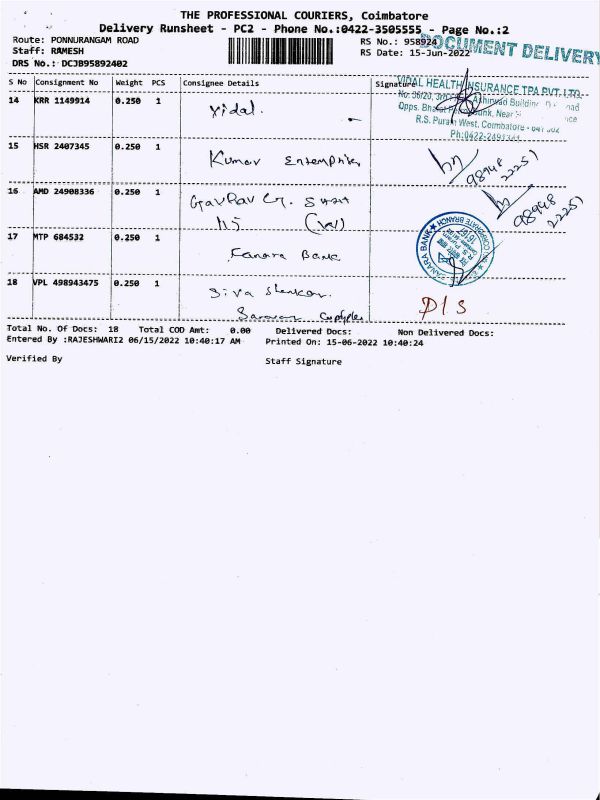 THE PROFESSIONAL COURIERS, Coimbatore
Delivery Runsheet - PC2 - Phone No.:0422-3505555 - Page No.:2
Route: PONNURANGAM ROAD
RS No.: 958924
DOCUMENT DELIVERY
Staff: RAMESH
RS Date: 15-Jun-2022
DRS No.: DCJB95892402
S No Consignment No Weight PCS Consignee Details Signature
VIDAL HEALTH INSURANCE TPA PVT. LTD.
14 KRR 1149914 0.250 1 Vidal.
No. 36/20, Building
Opps. Bharat Bank, Near
R.S. Puram West, Coimbatore - 641 002
Ph:0422-2491
15 HSR 2407345 0.250 1 Kumar Enterprises
98948
22251
16 AMD 24908336 0.250 1 Gaurav
98948
22251
17 MTP 684532 0.250 1 Canara Bank
CANARA BANK ★ CORPORATE BRANCH
18 VPL 498943475 0.250 1 Siva Shankar.
D/S
Total No. Of Docs: 18 Total COD Amt: 0.00 Delivered Docs: Non Delivered Docs:
Entered By :RAJESHWARI2 06/15/2022 10:40:17 AM Printed On: 15-06-2022 10:40:24
Verified By Staff Signature